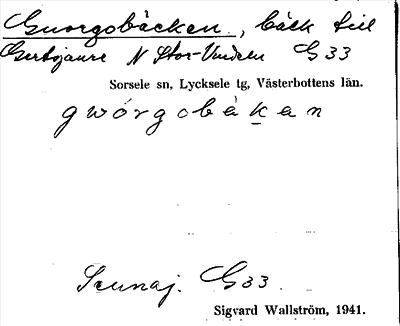 Guorgobäcken, bäck till
Gertsjaure N Stor-Uvdeln G 33
Sorsele sn, Lycksele tg, Västerbottens län.
gwórgobàkan
G 33.
Sigvard Wallström, 1941.